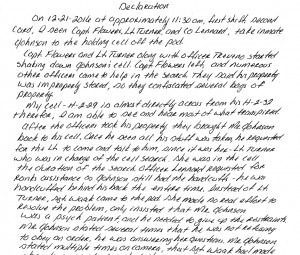 Declaration
On 12-21-2016 at approximately 11:30am, first shift, Second
Card, I seen Capt Flowers, Lt Turner, and CO Lennard, take inmate
Johnson to the holding cell off the pod.
Capt Flowers and Lt Turner along with officer started
shaking down Johnson's cell. Capt Flowers left, and numerous
other officers came to help in the search. They said his property
was improperly stored, so they confiscated several bags of
property.
My cell - H-2-29 is almost directly across from his H-2-32
therefore, I am able to see and hear most of what transpired.
After the officers took his property they brought Mr. Johnson
back to his cell. Once he seen all his stuff was taken he requested
for the Lt to come and talk to him, since it was her - Lt Turner
who was in charge of the cell search. She was in the cell
the duration of the search. Officer Lennard requested for
ranks assistance as Johnson still had the handcuffs - he was
handcuffed behind his back the entire time. Instead of Lt
Turner, Sgt Womk came to the pod. She made no real effort to
resolve the problem, only insisted that Mr. Johnson
was a psych patient, and he needed to give up the restraints
Mr. Johnson stated several times that he was not refusing
to obey an order, he was answering her question. Mr. Johnson
stated multiple times on camera, that Sgt Womk had made